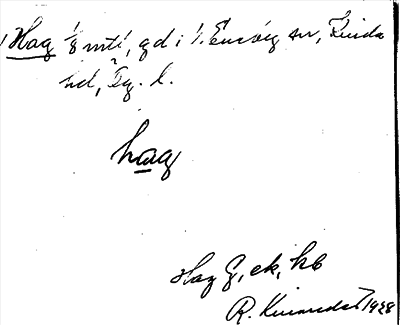 Hag 1/8 mtl, gd i V. Eneby sn, Kinda
hd, Ög. l.
hag
Hag G, ek, hb
R. 1928